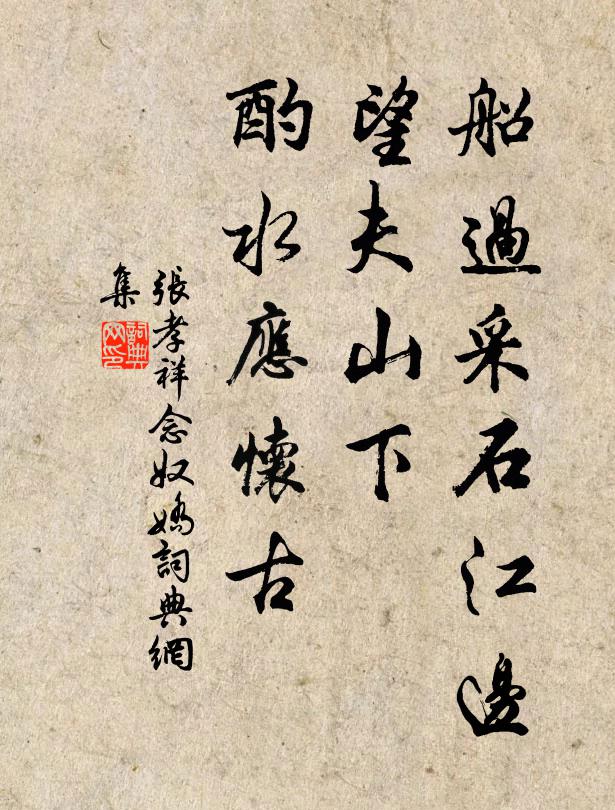 船過采石江邊
望夫山下
酌水應懷古
張孝祥念奴嬌詞典網
集
詞典
网印